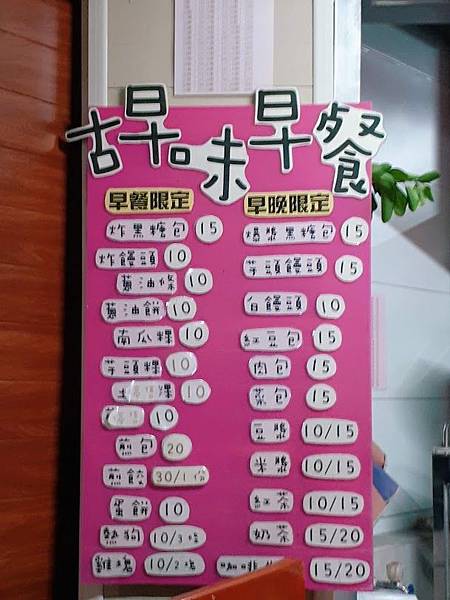 古早味早餐
早餐限定
炸黑糖包 15
炸饅頭 10
蔥油條 10
蔥油餅 10
南瓜粿 10
芋頭粿 10
粿 10
10
煎包 20
煎餃 30/1份
蛋餅 10
熱狗 10/3塊
雞塊 10/2塊
早晚限定
爆漿黑糖包 15
芋頭饅頭 15
白饅頭 10
紅豆包 15
肉包 15
菜包 15
豆漿 10/15
米漿 10/15
紅茶 10/15
奶茶 15/20
咖啡 15/20